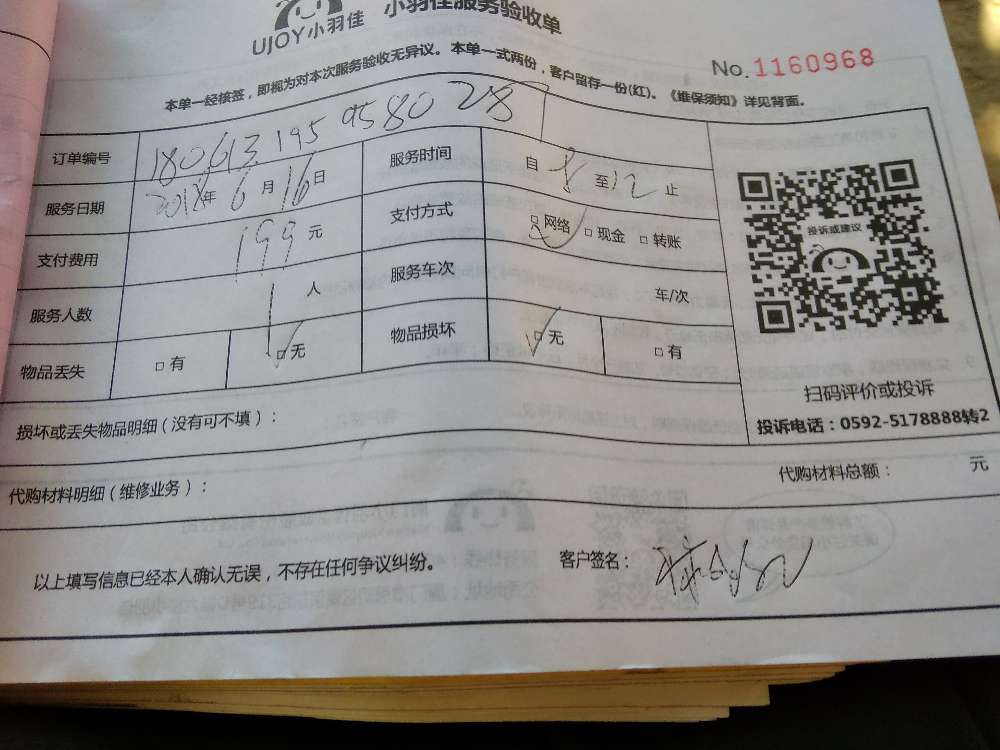 UJOY小羽佳 小羽佳服务验收单
No.1160968
本单一经接签，即视为对本次服务验收无异议。本单一式两份，客户留存一份(红)。《维保须知》详见背面。
订单编号 180613195958028
服务日期 2018年6月16日 服务时间 自8至12止
支付费用 199元 支付方式 □网络 □现金 □转账
服务人数 1人 服务车次 车/次
物品丢失 □有 □无 物品损坏 □无 □有
投诉或建议
扫码评价或投诉
投诉电话：0592-5178888转2
损坏或丢失物品明细（没有可不填）：
代购材料明细（维修业务）： 代购材料总额： 元
以上填写信息已经本人确认无误，不存在任何争议纠纷。 客户签名：